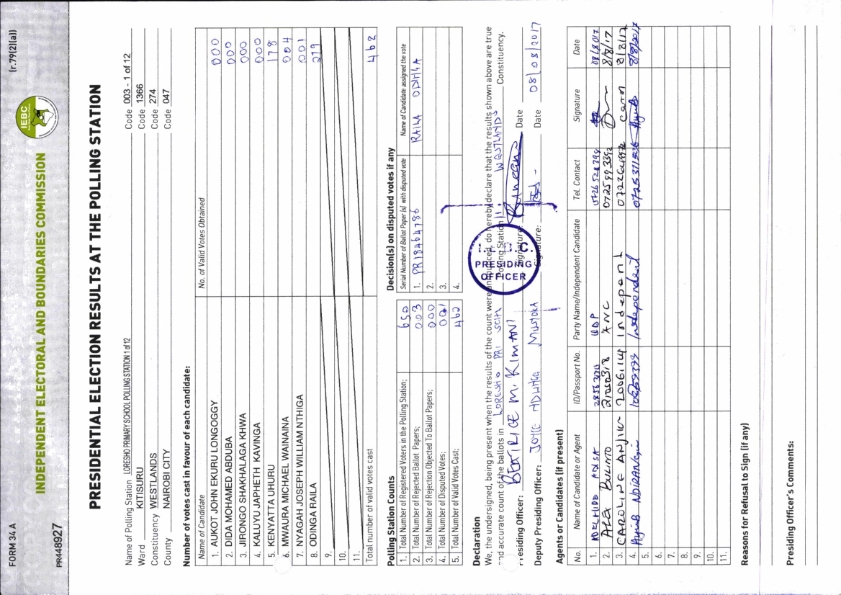 FORM 34 A
(r.79(2)(a))
PRM48927
IEBC
INDEPENDENT ELECTORAL AND BOUNDARIES COMMISSION
PRESIDENTIAL ELECTION RESULTS AT THE POLLING STATION
Name of Polling Station LORESHO PRIMARY SCHOOL POLLING STATION 1 of 12 Code 003 - 1 of 12
Ward KITISURU Code 1366
Constituency WESTLANDS Code 274
County NAIROBI CITY Code 047
Number of votes cast in favour of each candidate:
Name of Candidate No. of Valid Votes Obtained
1. AUKOT JOHN EKURU LONGOGGY 000
2. DIDA MOHAMED ABDUBA 000
3. JIRONGO SHAKHALAGA KHWA 000
4. KALUYU JAPHETH KAVINGA 000
5. KENYATTA UHURU 178
6. MWAURA MICHAEL WAINAINA 004
7. NYAGAH JOSEPH WILLIAM NTHIGA 001
8. ODINGA RAILA 279
9.
10.
11.
Total number of valid votes cast 462
Polling Station Counts
1. Total Number of Registered Voters in the Polling Station; 650
2. Total Number of Rejected Ballot Papers; 003
3. Total Number of Rejection Objected To Ballot Papers; 000
4. Total Number of Disputed Votes; 001
5. Total Number of Valid Votes Cast; 462
Decision(s) on disputed votes if any
Serial Number of Ballot Paper (s) with disputed vote Name of Candidate assigned the vote
1. PR18464786 RAILA ODINGA
2.
3.
4.
Declaration
We, the undersigned, being present when the results of the count were announced, do hereby declare that the results shown above are true
and accurate count of the ballots in LORESHO PRI SCH Polling Station WESTLANDS Constituency.
Presiding Officer: BEATRICE M. KIMANI Signature: Date
Deputy Presiding Officer: JOYCE Signature: Date 08/08/2017
I.E.B.C.
PRESIDING OFFICER
Agents or Candidates (if present)
No. Name of Candidate or Agent ID/Passport No. Party Name/Independent Candidate Tel. Contact Signature Date
1. UDP
2. ANC 8/8/17
3. CAROLINE Independent 8/8/17
4. Independent 8/8/2017
5.
6.
7.
8.
9.
10.
11.
Reasons for Refusal to Sign (if any)
Presiding Officer's Comments: